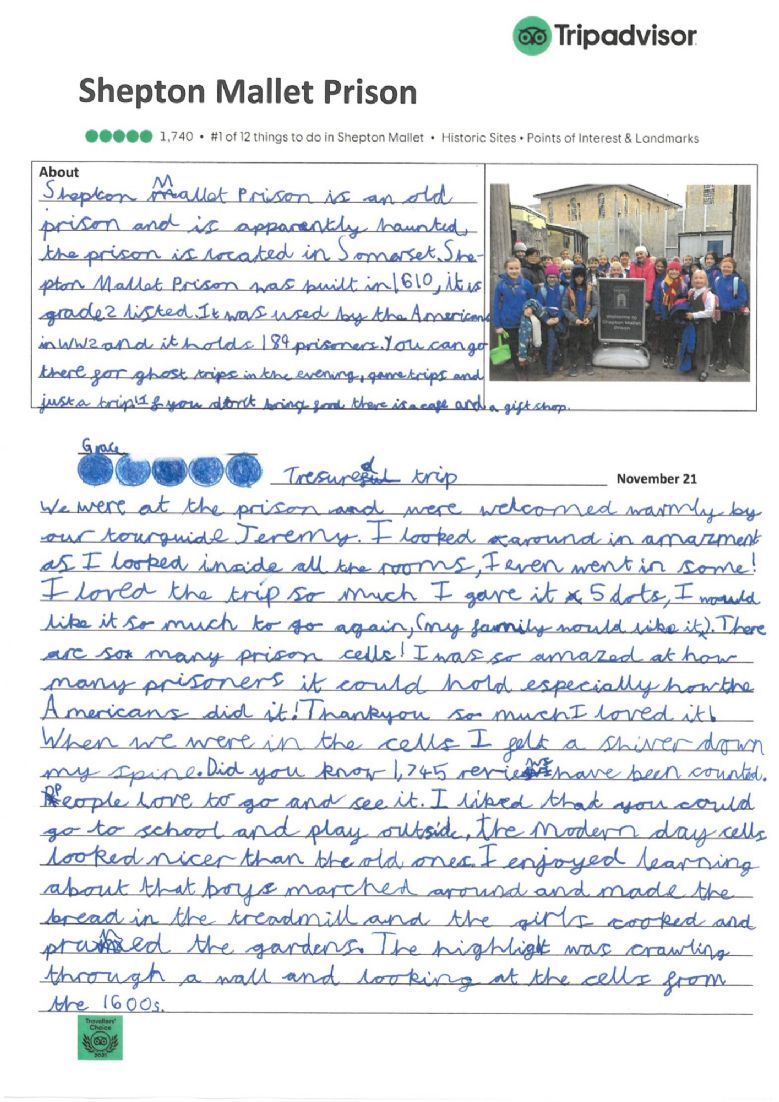 Tripadvisor
Shepton Mallet Prison
1,740 • #1 of 12 things to do in Shepton Mallet • Historic Sites • Points of Interest & Landmarks
About
Shepton Mallet Prison is an old
prison and is apparently haunted,
the prison is located in Somerset. She-
pton Mallet Prison was built in 1610, it is
grade 2 listed. It was used by the Americans
in WW2 and it holds 189 prisoners. You can go
there for ghost trips in the evening, game trips and
just a trip! If you don't bring food there is a cafe and a gift shop.
Welcome to
Shepton Mallet
Prison
Grace
Tresured trip
November 21
We were at the prison and were welcomed warmly by
our tourguide Jeremy. I looked around in amazment
as I looked inside all the rooms, I even went in some!
I loved the trip so much I gave it 5 dots, I would
like it so much to go again, (my family would like it). There
are so many prison cells! I was so amazed at how
many prisoners it could hold especially how the
Americans did it! Thankyou so much I loved it!
When we were in the cells I felt a shiver down
my spine. Did you know 1,745 reviews have been counted.
People love to go and see it. I liked that you could
go to school and play outside, the modern day cells
looked nicer than the old ones. I enjoyed learning
about that boys marched around and made the
bread in the treadmill and the girls cooked and
pruned the gardens. The highlight was crawling
through a wall and looking at the cells from
the 1600s.
Travellers'
Choice
2021